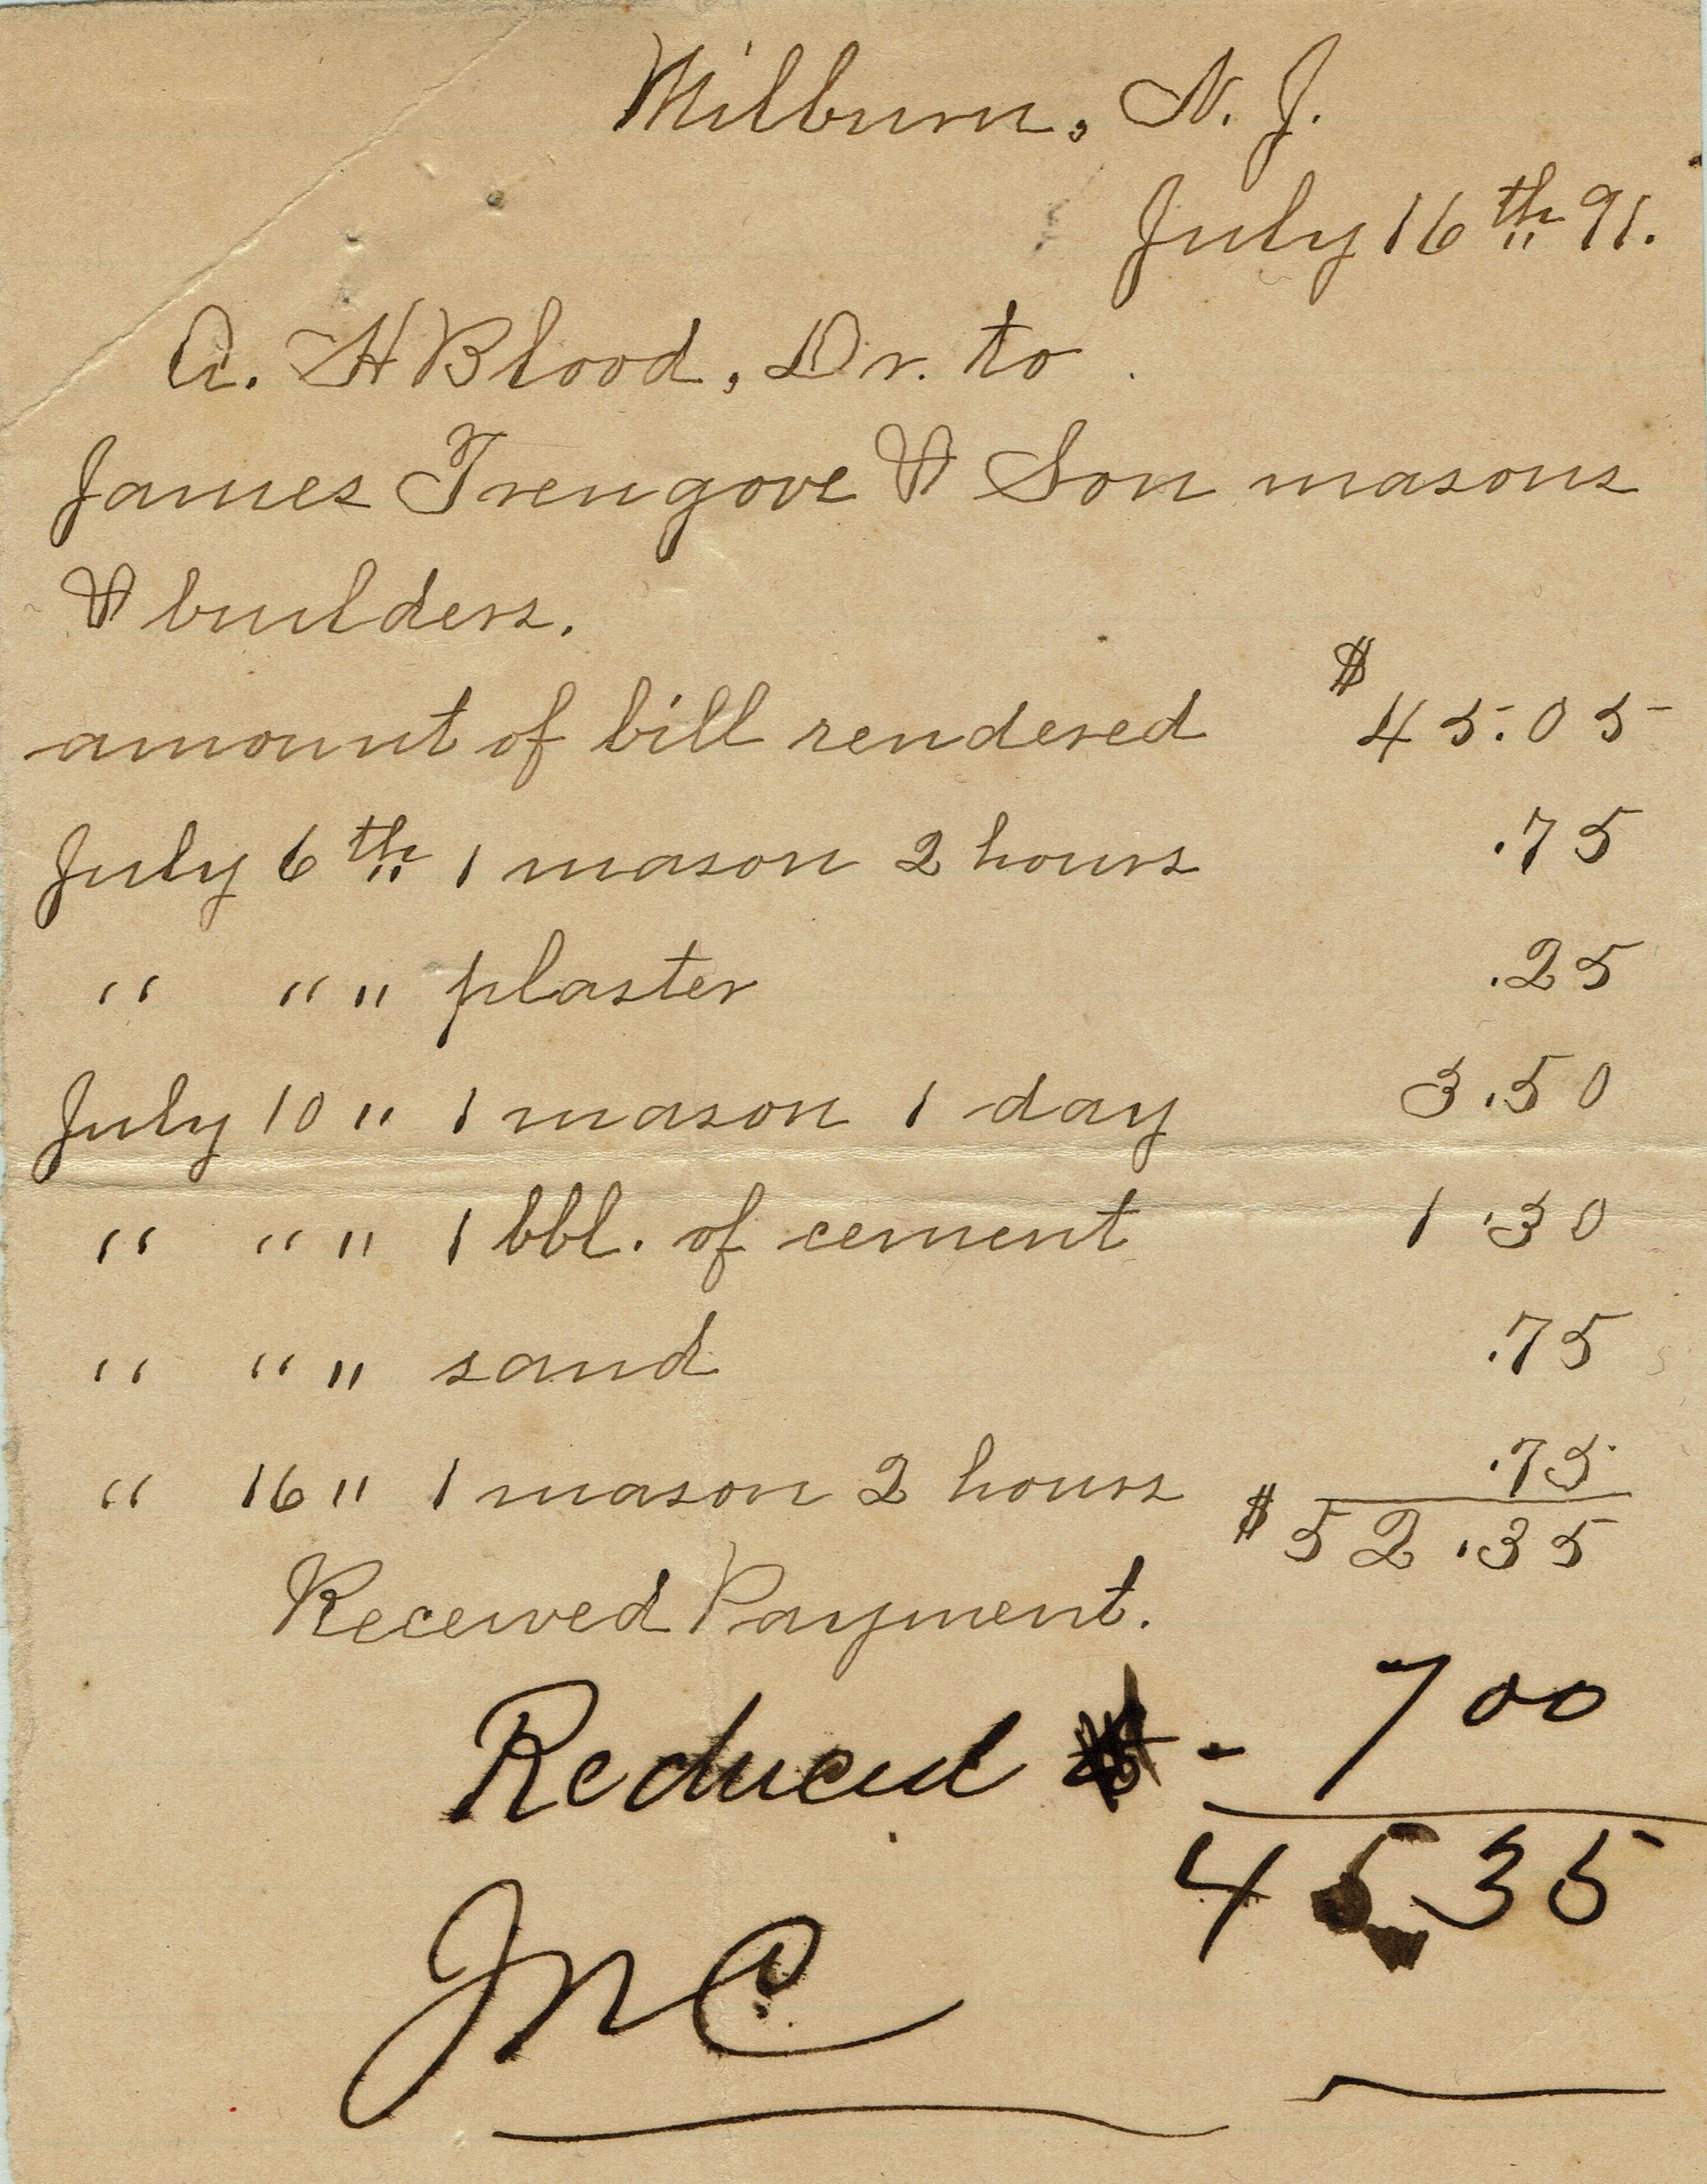 Milburn, N. J.
July 16th 91.
A. H Blood, Dr. to
James Trengove & Son masons
& builders.
amount of bill rendered $45.05
July 6th 1 mason 2 hours .75
" " " plaster .25
July 10 " 1 mason 1 day 3.50
" " " 1 bbl. of cement 1.30
" " " sand .75
" 16 " 1 mason 2 hours .75
$52.35
Received Payment.
Reduced - 7 00
45 35